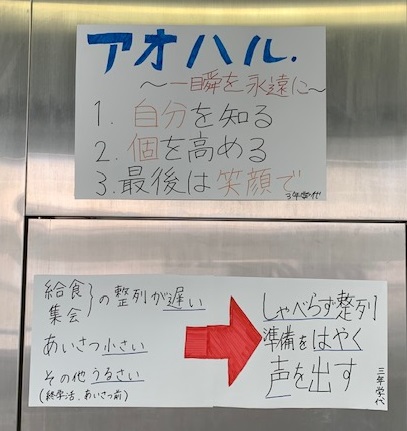 アオハル.
〜一瞬を永遠に〜
1. 自分を知る
2. 個を高める
3. 最後は笑顔で
3年学代
給食
集会
の整列が遅い
あいさつ小さい
その他うるさい
(終学活、あいさつ前)
しゃべらず整列
準備をはやく
声を出す
三年学代